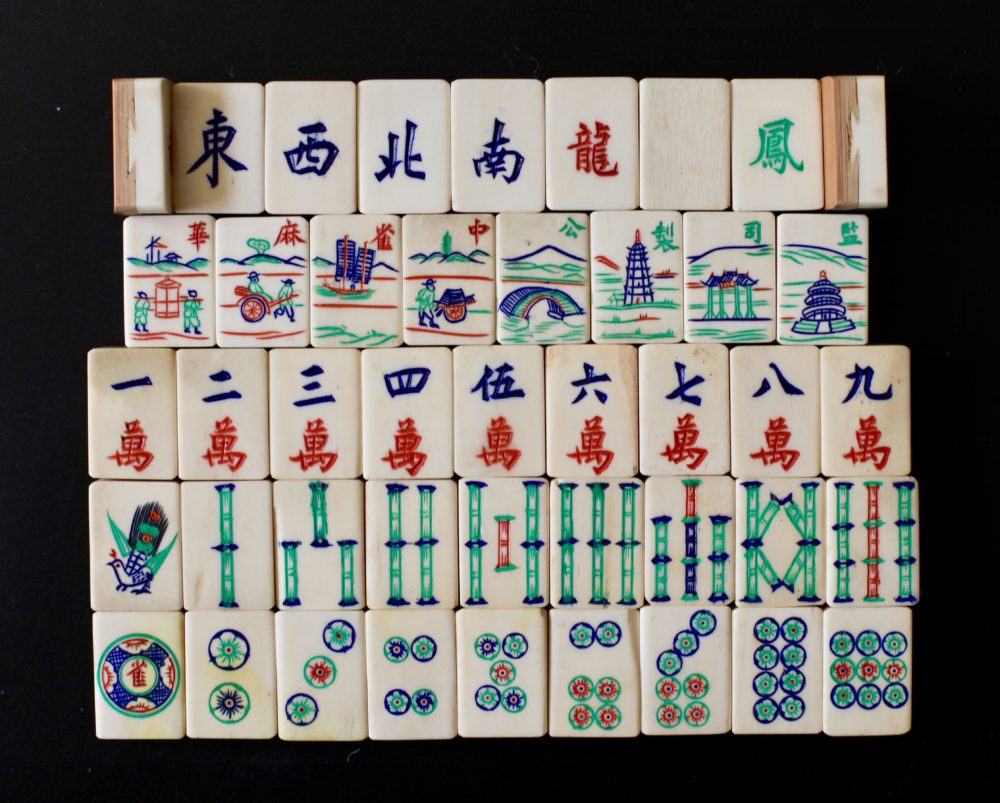 東 西 北 南 龍 鳳
華 麻 雀 中 公 製 司 監
一 二 三 四 伍 六 七 八 九
萬 萬 萬 萬 萬 萬 萬 萬 萬
雀